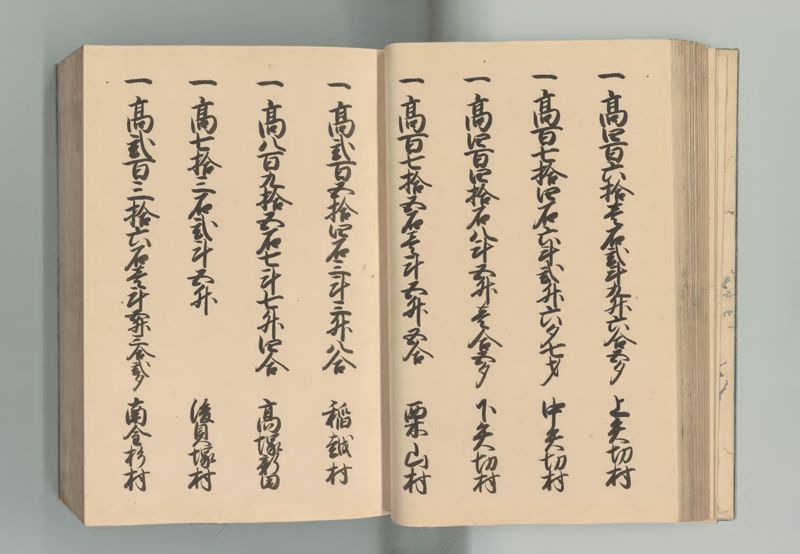 一 高四百六拾壱石弐斗九升六合五夕 上矢切村
一 高百七拾四石六斗弐升六夕七才 中矢切村
一 高四百四拾石八斗五升壱合五夕 下矢切村
一 高百七拾五石壱斗五升五合 栗山村
一 高弐百五拾四石三斗三升八合 稲越村
一 高八百九拾五石七斗七升四合 高塚新田
一 高七拾三石弐斗五升 後貝塚村
一 高弐百三拾六石壱斗五升三合弐夕 南金杉村